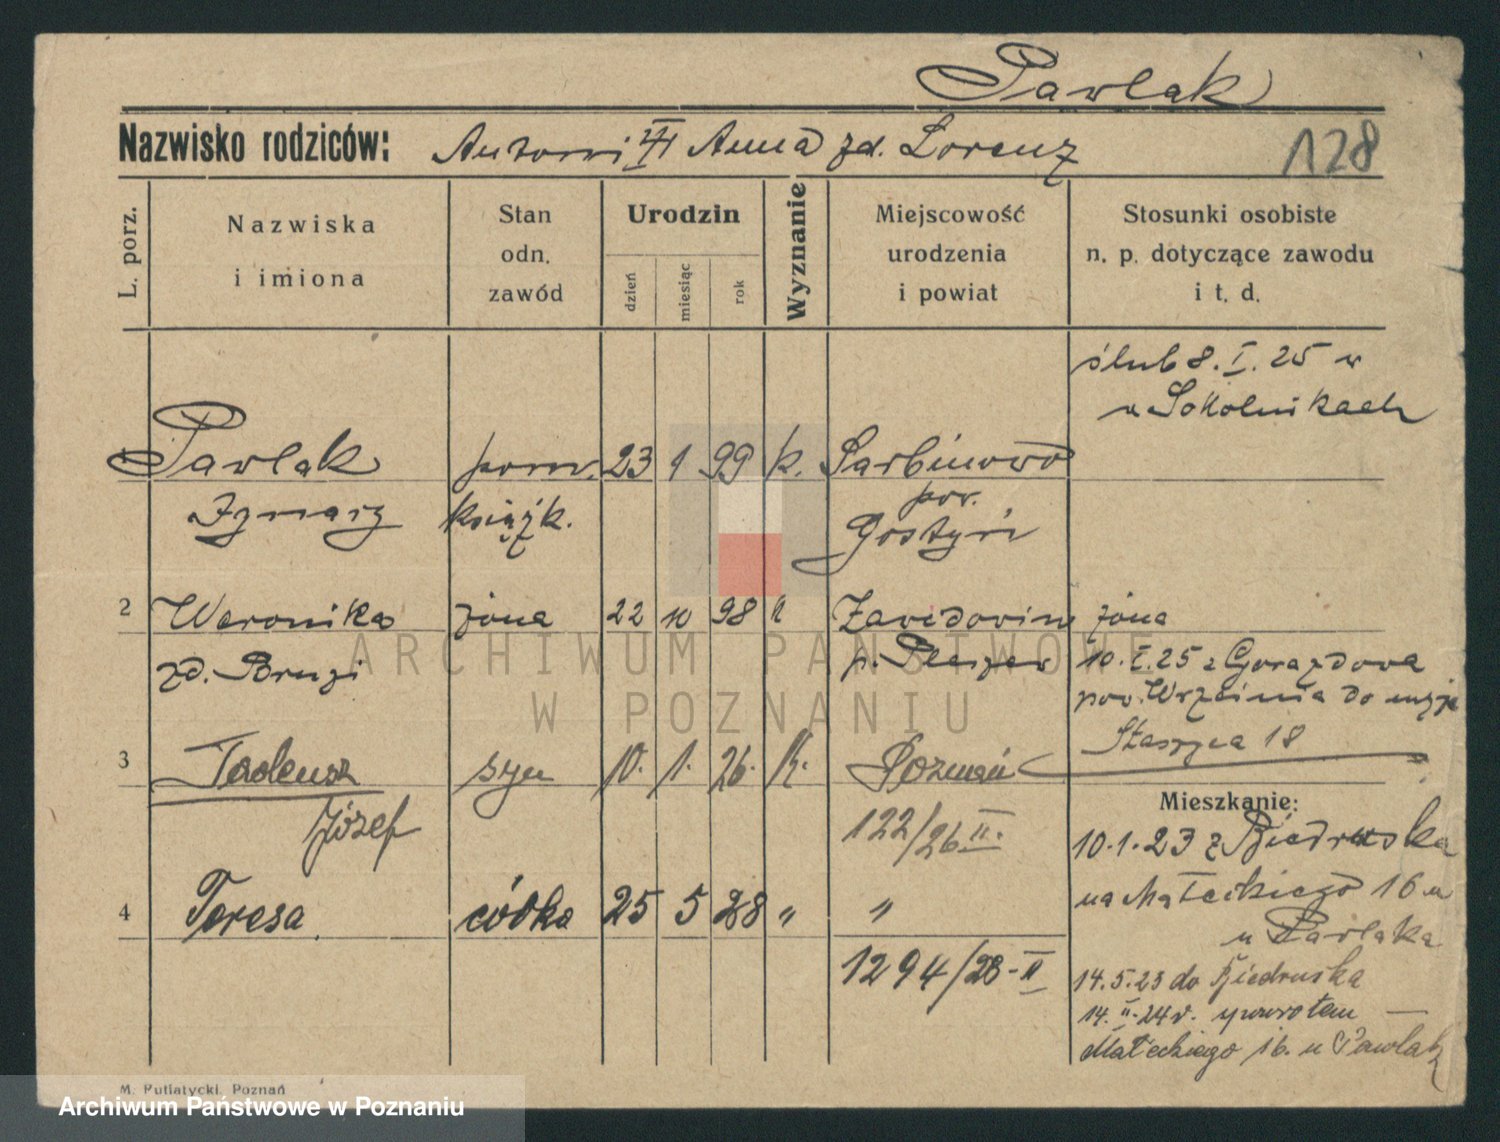 Pawlak
Nazwisko rodziców: Antoni i Anna zd. Lorenz 128
L. porz.
Nazwiska
i imiona
Stan
odn.
zawód
Urodzin
dzień
miesiąc
rok
Wyznanie
Miejscowość
urodzenia
i powiat
Stosunki osobiste
n. p. dotyczące zawodu
i t. d.
ślub 8. I. 25 w
w Sokolnikach
1 Pawlak pom. 23 1 99 k. Sarbinowo
Ignacy książk. pow.
Gostyń
2 Weronika żona 22 10 98 k Zawidowice żona
zd. p. Pleszew 10. I. 25 z Gorazdowa
pow. Września do męża
Staszyca 18
3 Tadeusz syn 10. 1. 26. k. Poznań
Józef 122/26 II.
Mieszkanie:
10.1.23 z Biedruska
na Małeckiego 16 u
u Pawlaka
4 Teresa córka 25 5 28 " "
1294/28-II
14.5.23 do Biedruska
14. II. 24 r. z powrotem —
Małeckiego 16. u Pawlak
M. Putiatycki, Poznań
ARCHIWUM PAŃSTWOWE
W POZNANIU
Archiwum Państwowe w Poznaniu